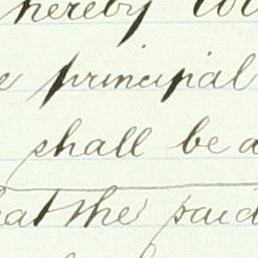 hereby
principal
shall be a
at the said